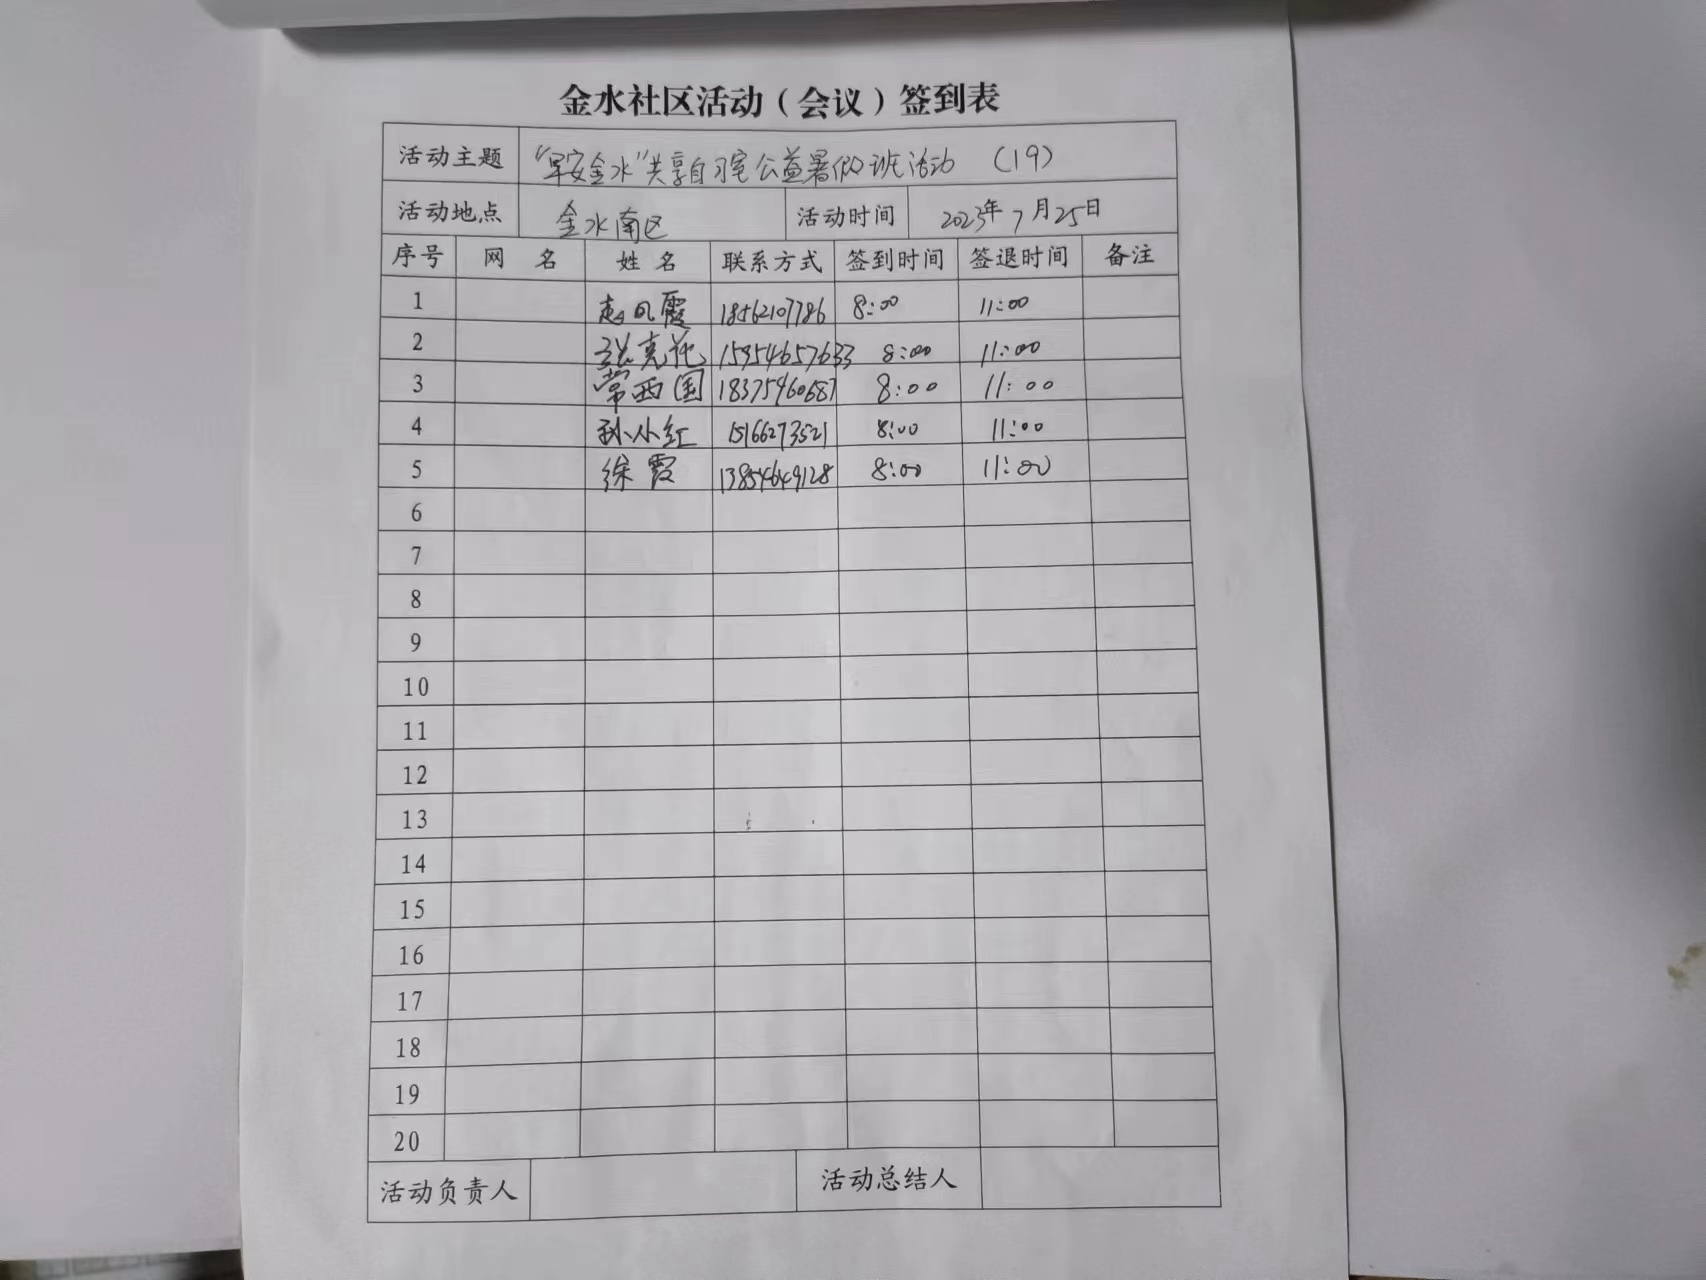 金水社区活动（会议）签到表
活动主题 “早安金水”共享自习室公益暑假班活动 （19）
活动地点 金水南区 活动时间 2023年7月25日
序号 网 名 姓 名 联系方式 签到时间 签退时间 备注
1 赵凤霞 18562107786 8:00 11:00
2 张克花 15954657633 8:00 11:00
3 常西国 18375460687 8:00 11:00
4 孙小红 15166273521 8:00 11:00
5 徐霞 13854649128 8:00 11:00
6
7
8
9
10
11
12
13
14
15
16
17
18
19
20
活动负责人 活动总结人